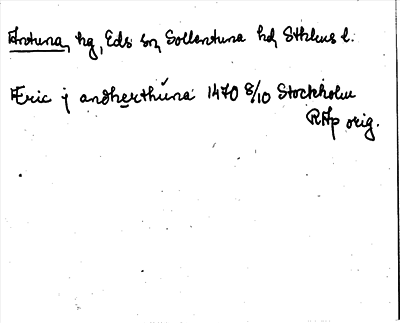 Antuna, hg, Eds sn, Sollentuna hd, Sthlms l.
Æric j andherthuna 1470 8/10 Stockholm
RAp orig.